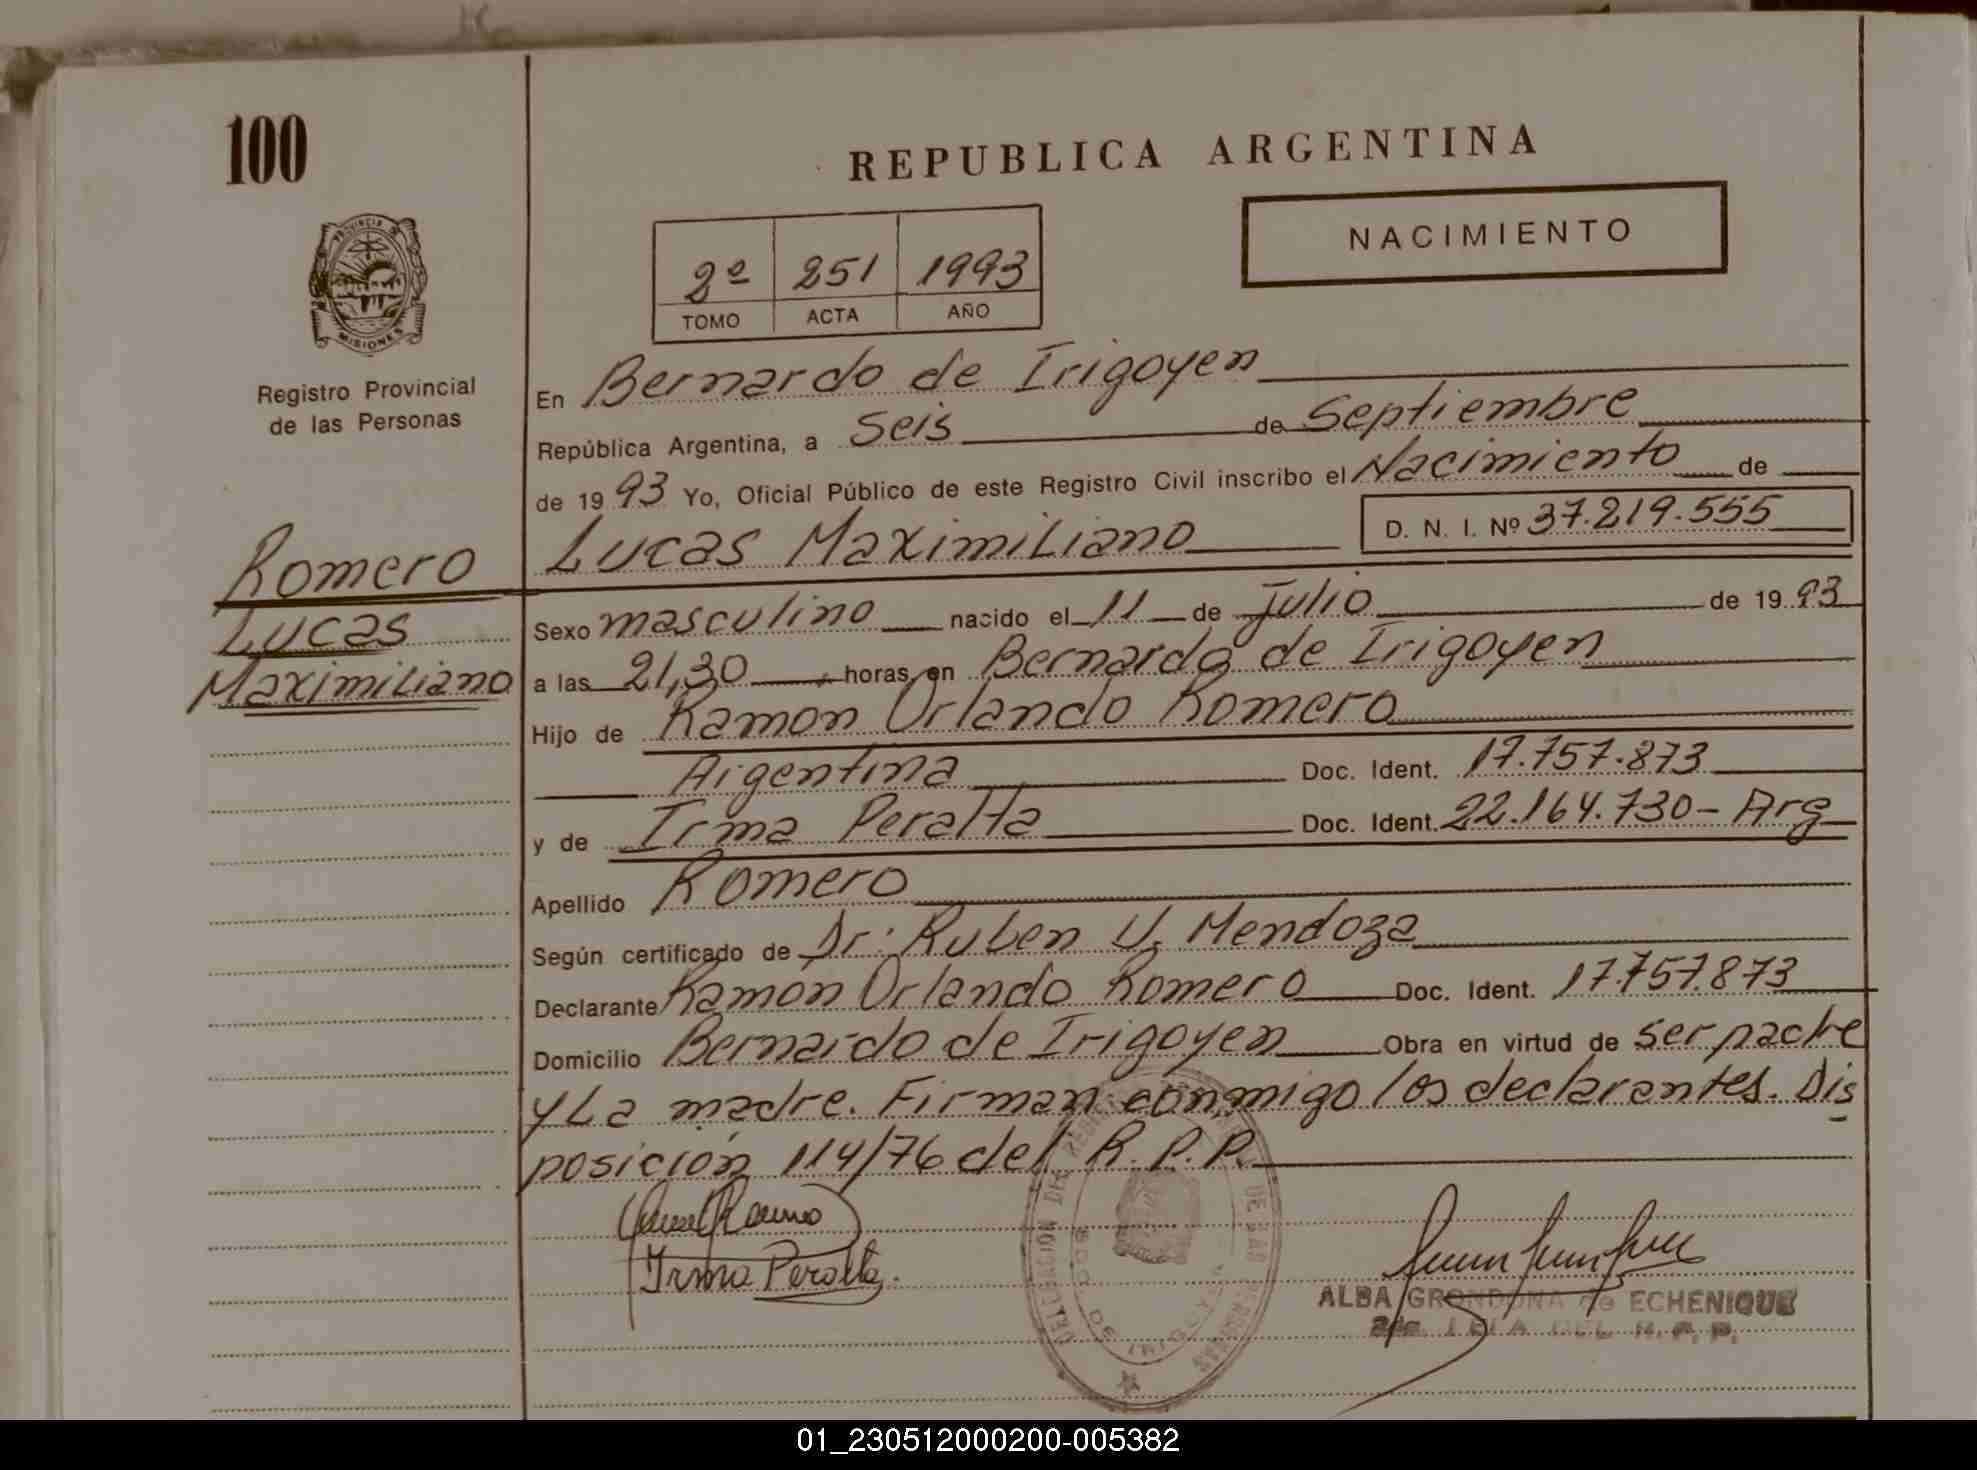 100
REPUBLICA ARGENTINA
NACIMIENTO
2º 251 1993
TOMO ACTA AÑO
PROVINCIA DE
MISIONES
Registro Provincial
de las Personas
En Bernardo de Irigoyen
República Argentina, a Seis de Septiembre
de 1993 Yo, Oficial Público de este Registro Civil inscribo el Nacimiento de
Lucas Maximiliano D. N. I. Nº 37.219.555
Romero
Lucas
Maximiliano
Sexo masculino nacido el 11 de Julio de 1993
a las 21,30 horas en Bernardo de Irigoyen
Hijo de Ramon Orlando Romero
Argentina Doc. Ident. 17.757.873
y de Irma Peralta Doc. Ident. 22.164.730 - Arg
Apellido Romero
Según certificado de Dr: Ruben U. Mendoza
Declarante Ramón Orlando Romero Doc. Ident. 17.757.873
Domicilio Bernardo de Irigoyen Obra en virtud de ser padre
y La madre. Firman conmigo los declarantes. Dis
posición 114/76 del R.P.P.
Irma Peralta.
DELEGACION DEL REGISTRO DE LAS PERSONAS
ALBA GRONDONA de ECHENIQUE
DEL R. P. P.
01_230512000200-005382